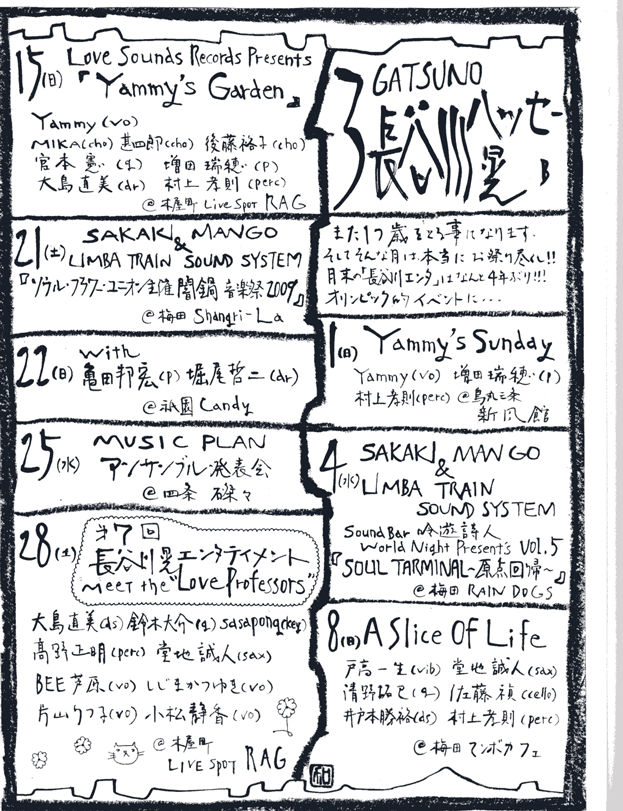 3 GATSUNO
長谷川ハッセー晃 B
また1つ歳をとる事になります。
そしてそんな月は本当にお祭り尽くし!!
月末の「長谷川エンタ」はなんと4年ぶり!!!
オリンピック的イベントに・・・
1(日) Yammy's Sunday
Yammy(vo) 増田瑞穂(p)
村上孝則(perc) @烏丸三条
新風館
4(水) SAKAKI MANGO
&
LIMBA TRAIN
SOUND SYSTEM
Sound Bar 吟遊詩人
World Night Presents VOL.5
『SOUL TARMINAL~原点回帰~』
@梅田 RAIN DOGS
8(日) A Slice Of Life
戸高一生(vib) 堂地誠人(sax)
清野拓巳(g) 佐藤禎(cello)
井戸本勝裕(ds) 村上孝則(perc)
@梅田 マンボカフェ
15(日) Love Sounds Records Presents
『Yammy's Garden』
Yammy(vo)
MIKA(cho) 甚四郎(cho) 後藤裕子(cho)
宮本憲(g) 増田瑞穂(p)
大島直美(dr) 村上孝則(perc)
@木屋町 Live Spot RAG
21(土) SAKAKI MANGO
&
LIMBA TRAIN SOUND SYSTEM
『ソウル・フラワー・ユニオン主催 闇鍋音楽祭2009』
@梅田 Shangri-La
22(日) with
亀田邦宏(p) 堀尾哲二(dr)
@祇園 Candy
25(水) MUSIC PLAN
アンサンブル発表会
@四条 磔々
28(土) 才7回
長谷川晃エンタテイメント
meet the "Love Professors"
大島直美(ds) 鈴木大介(g) sasapong(key)
高野正明(perc) 堂地誠人(sax)
BEE芦原(vo) いじまかつゆき(vo)
片山りつ子(vo) 小松静香(vo)
@木屋町
LIVE SPOT RAG